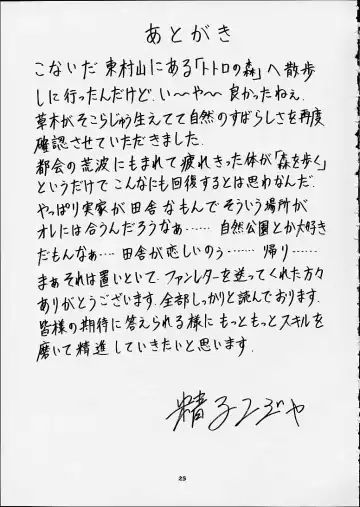 あとがき
こないだ 東村山にある「トトロの森」へ散歩
しに行ったんだけど、い〜や〜 良かったねぇ。
草木がそこらじゅう生えてて自然のすばらしさを再度
確認させていただきました。
都会の荒波にもまれて疲れきった体が「森を歩く」
というだけで こんなにも回復するとは思わなんだ。
やっぱり実家が田舎なもんでそういう場所が
オレには合うんだろうなぁ…… 自然公園とか大好き
だもんなぁ… 田舎が恋しいのぅ…… 帰り……
まぁそれは置いといて、ファンレターを送ってくれた方々
ありがとうございます。全部しっかりと読んでおります。
皆様の期待に答えられる様に もっともっとスキルを
磨いて精進していきたいと思います。
精子ンヂャ
25